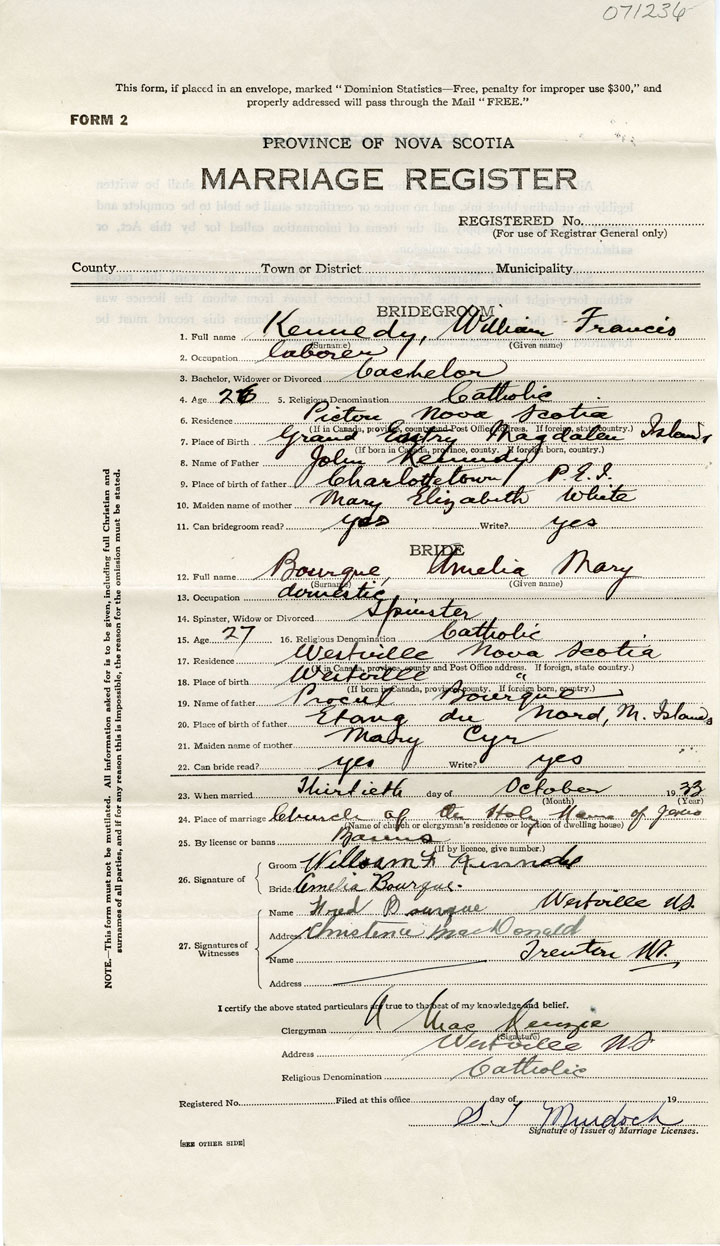 071236
This form, if placed in an envelope, marked "Dominion Statistics—Free, penalty for improper use $300," and
properly addressed will pass through the Mail "FREE."
FORM 2
PROVINCE OF NOVA SCOTIA
MARRIAGE REGISTER
REGISTERED No.
(For use of Registrar General only)
County Town or District Municipality
BRIDEGROOM
1. Full name Kennedy, William Francis
(Surname) (Given name)
2. Occupation laborer
3. Bachelor, Widower or Divorced bachelor
4. Age 26 5. Religious Denomination Catholic
6. Residence Pictou Nova Scotia
(If in Canada, province, county and Post Office address. If foreign state, country.)
7. Place of Birth Grand Entry Magdalen Islands
(If born in Canada, province, county. If foreign born, country.)
8. Name of Father John Kennedy
9. Place of birth of father Charlottetown P.E.I.
10. Maiden name of mother Mary Elizabeth White
11. Can bridegroom read? yes Write? yes
BRIDE
12. Full name Bourque, Amelia Mary
(Surname) (Given name)
13. Occupation domestic
14. Spinster, Widow or Divorced Spinster
15. Age 27 16. Religious Denomination Catholic
17. Residence Westville Nova Scotia
(If in Canada, province, county and Post Office address. If foreign, state country.)
18. Place of birth Westville "
(If born in Canada, province, county. If foreign born, country.)
19. Name of father Bourque
20. Place of birth of father Etang du Nord, M. Islands
21. Maiden name of mother Mary Cyr
22. Can bride read? yes Write? yes
23. When married Thirtieth day of October 1933
(Month) (Year)
24. Place of marriage Church of the Holy Name of Jesus
(Name of church or clergyman's residence or location of dwelling house)
25. By license or banns Banns
(If by licence, give number.)
26. Signature of
Groom William F Kennedy
Bride Amelia Bourque.
27. Signatures of Witnesses
Name Fred Bourque Westville NS.
Address Christena MacDonald
Name Trenton NS.
Address
I certify the above stated particulars are true to the best of my knowledge and belief.
Clergyman MacKenzie
(Signature)
Address Westville NS
Religious Denomination Catholic
Registered No. Filed at this office day of 19
S. T Murdoch
Signature of Issuer of Marriage Licenses.
[SEE OTHER SIDE]
NOTE.—This form must not be mutilated. All information asked for is to be given, including full Christian and
surnames of all parties, and if for any reason this is impossible, the reason for the omission must be stated.